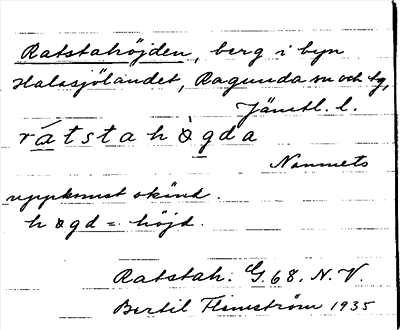 Ratstahöjden, berg i byn
Halasjölandet, Ragunda sn och tg,
Jämtl. l.
rátstahògda
Namnets
uppkomst okänd.
högd = höjd.
Ratstah. G. 68. N. V.
Bertil Flemström 1935